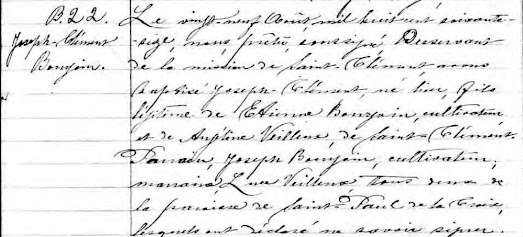 B.22.
Joseph-Clément
Bourgoin.
Le vingt-neuf Août, mil huit cent soixante-
seize, nous, prêtre, soussigné, Desservant
de la mission de Saint-Clément, avons
baptisé Joseph-Clément, né hier, fils
légitime de Etienne Bourgoin, cultivateur,
et de Veilleux, de Saint-Clément.
Parrain, Joseph Bourgoin, cultivateur,
marraine, Luce Veilleux, tous deux de
la paroisse de Saint-Paul de la Croix,
lesquels ont déclaré ne savoir signer.